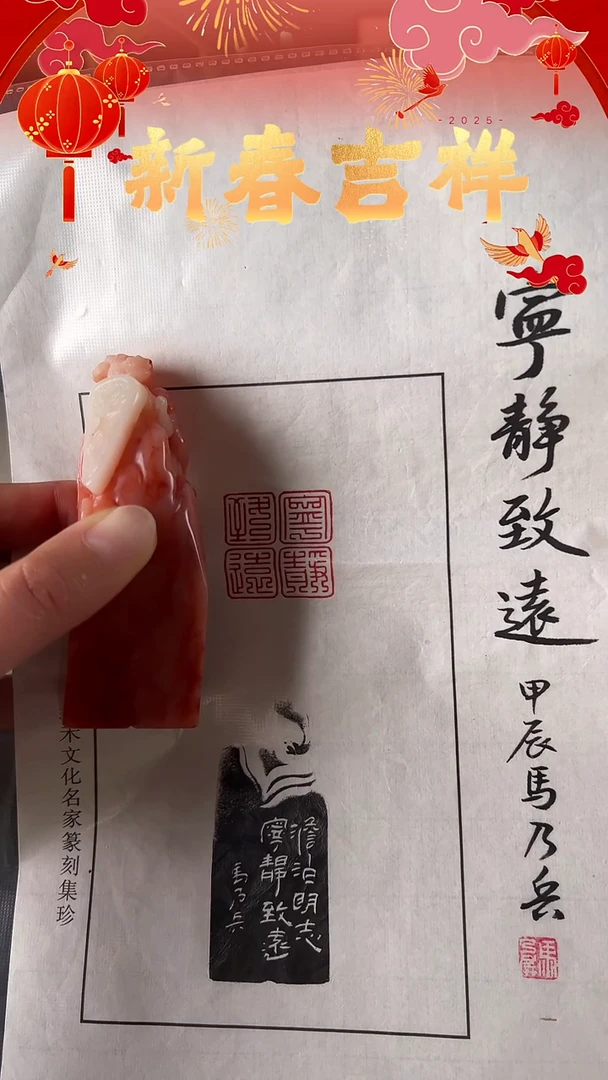 -2025-
新春吉祥
寧靜致遠
甲辰馬乃兵
寧靜
致遠
澹泊明志
寧靜致遠
馬乃兵
文化名家篆刻集珍